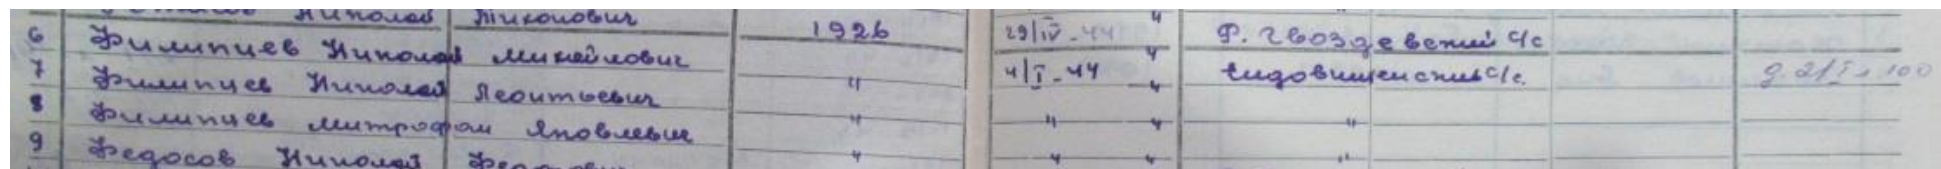 Николай Тихонович "
6 Филипцев Николай Михайлович 1926 29/IV-44 " Р. Гвоздевский с/с
7 Филипцев Николай Леонтьевич " 4/I-44 "
8 Филипцев Митрофан Яковлевич " " " "
9 Федосов Николай " " " "